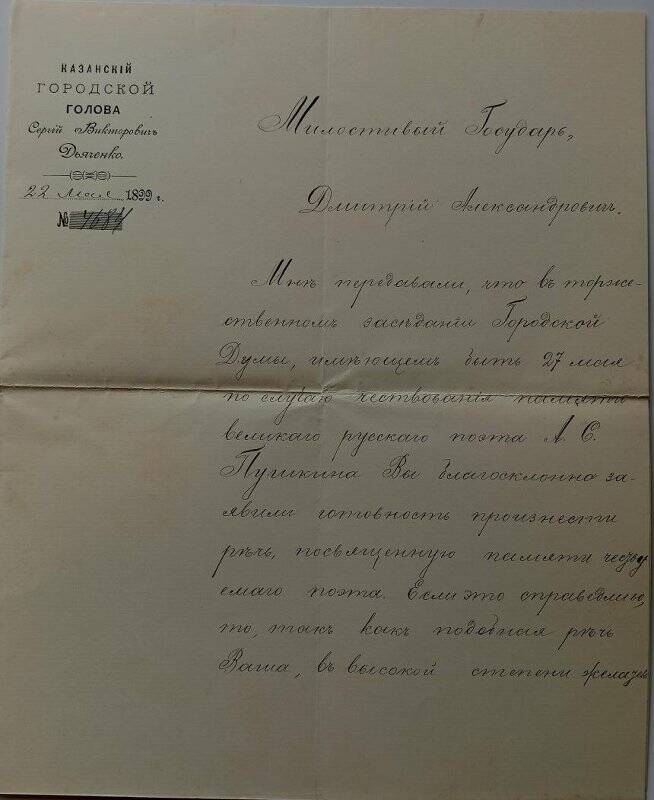 КАЗАНСКІЙ
ГОРОДСКОЙ
ГОЛОВА
Сергій Викторовичъ
Дьяченко.
22 мая 1899 г.
№
Милостивый Государь,
Дмитрій Александровичъ.
Мнѣ передавали, что въ торже-
ственномъ засѣданіи Городской
Думы, имѣющемъ быть 27 мая
по случаю чествованія памяти
великаго русскаго поэта А. С.
Пушкина Вы благосклонно за-
явили готовность произнести
рѣчь, посвященную памяти
емаго поэта. Если это справедливо,
то, такъ какъ подобная рѣчь
Ваша, въ высокой степени